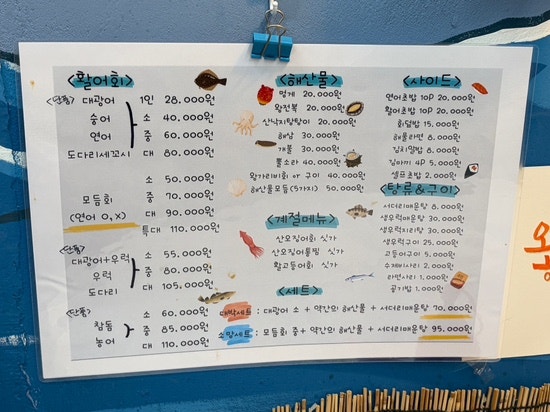 <활어회>
<단품> 대광어 1인 28.000원
숭어 소 40.000원
연어 중 60.000원
도다리세꼬시 대 80.000원
소 50.000원
모듬회 중 70.000원
(연어 O, X) 대 90.000원
특대 110.000원
<단품>
대광어+우럭 소 55.000원
우럭 중 80.000원
도다리 대 105.000원
<단품> 소 60.000원
참돔 중 85.000원
농어 대 110.000원
<해산물>
멍게 20,000원
왕전복 20,000원
산낙지탕탕이 20,000원
해삼 30,000원
개불 30,000원
뿔소라 40,000원
왕가리비회 or 구이 40,000원
해산물모듬(5가지) 50,000원
<계절메뉴>
산오징어회 싯가
산오징어통찜 싯가
활고등어회 싯가
<사이드>
연어초밥 10P 20,000원
활어초밥 10P 20,000원
회덮밥 15,000원
해물라면 8,000원
김치알밥 8,000원
김마끼 4P 5,000원
셀프초밥 2,000원
<탕류&구이>
서더리매운탕 8,000원
생우럭매운탕 30,000원
생우럭지리탕 30,000원
생우럭구이 25,000원
고등어구이 5,000원
수제비사리 2,000원
라면사리 1,000원
공기밥 1,000원
<세트>
대박세트 : 대광어 소 + 약간의 해산물 + 서더리매운탕 70,000원
소망세트 : 모듬회 중+ 약간의 해산물 + 서더리매운탕 95,000원